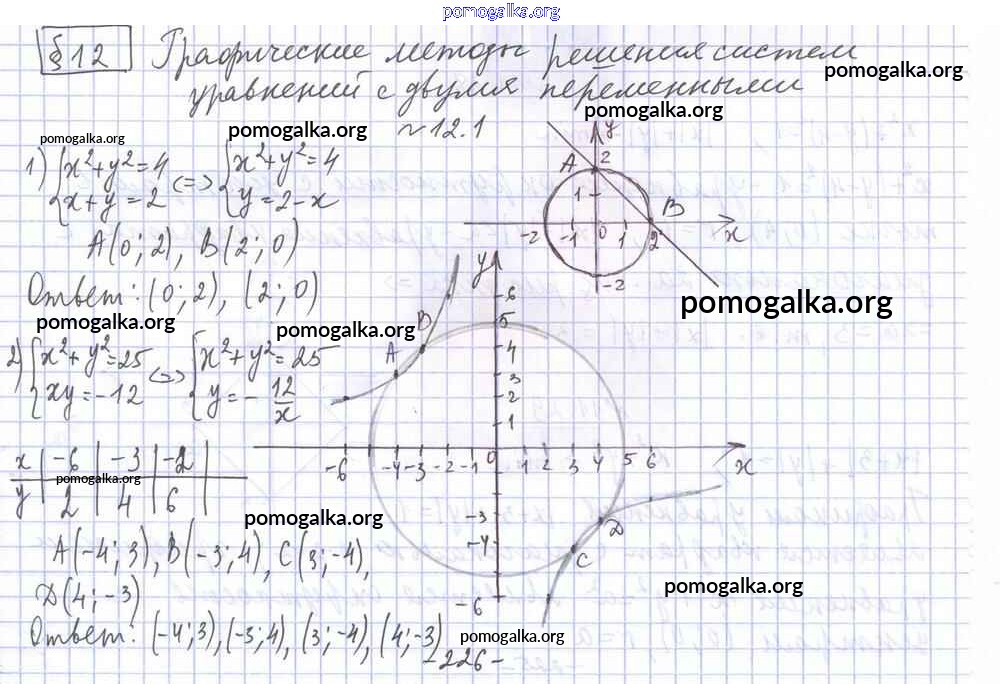 pomogalka.org
§12 Графические методы решения систем
pomogalka.org
уравнений с двумя переменными
pomogalka.org
pomogalka.org
pomogalka.org
~12.1
1) {x²+y²=4 <=> {x²+y²=4
{x+y=2 {y=2-x
A(0; 2), B(2; 0)
Ответ: (0; 2), (2; 0)
y
A 2
1
B
-2 -1 0 1 2 x
-2
pomogalka.org
pomogalka.org
pomogalka.org
2) {x²+y²=25 <=> {x²+y²=25
{xy=-12 {y=-12/x
x | -6 | -3 | -2 |
y | 2 | 4 | 6 |
pomogalka.org
y
6
5
B
4
A
3
2
1
-6 -4 -3 -2 -1 0 1 2 3 4 5 6 x
-3
D
-4
C
-6
pomogalka.org
A(-4; 3), B(-3; 4), C(3; -4),
D(4; -3)
pomogalka.org
Ответ: (-4; 3), (-3; 4), (3; -4), (4; -3)
pomogalka.org
-226-